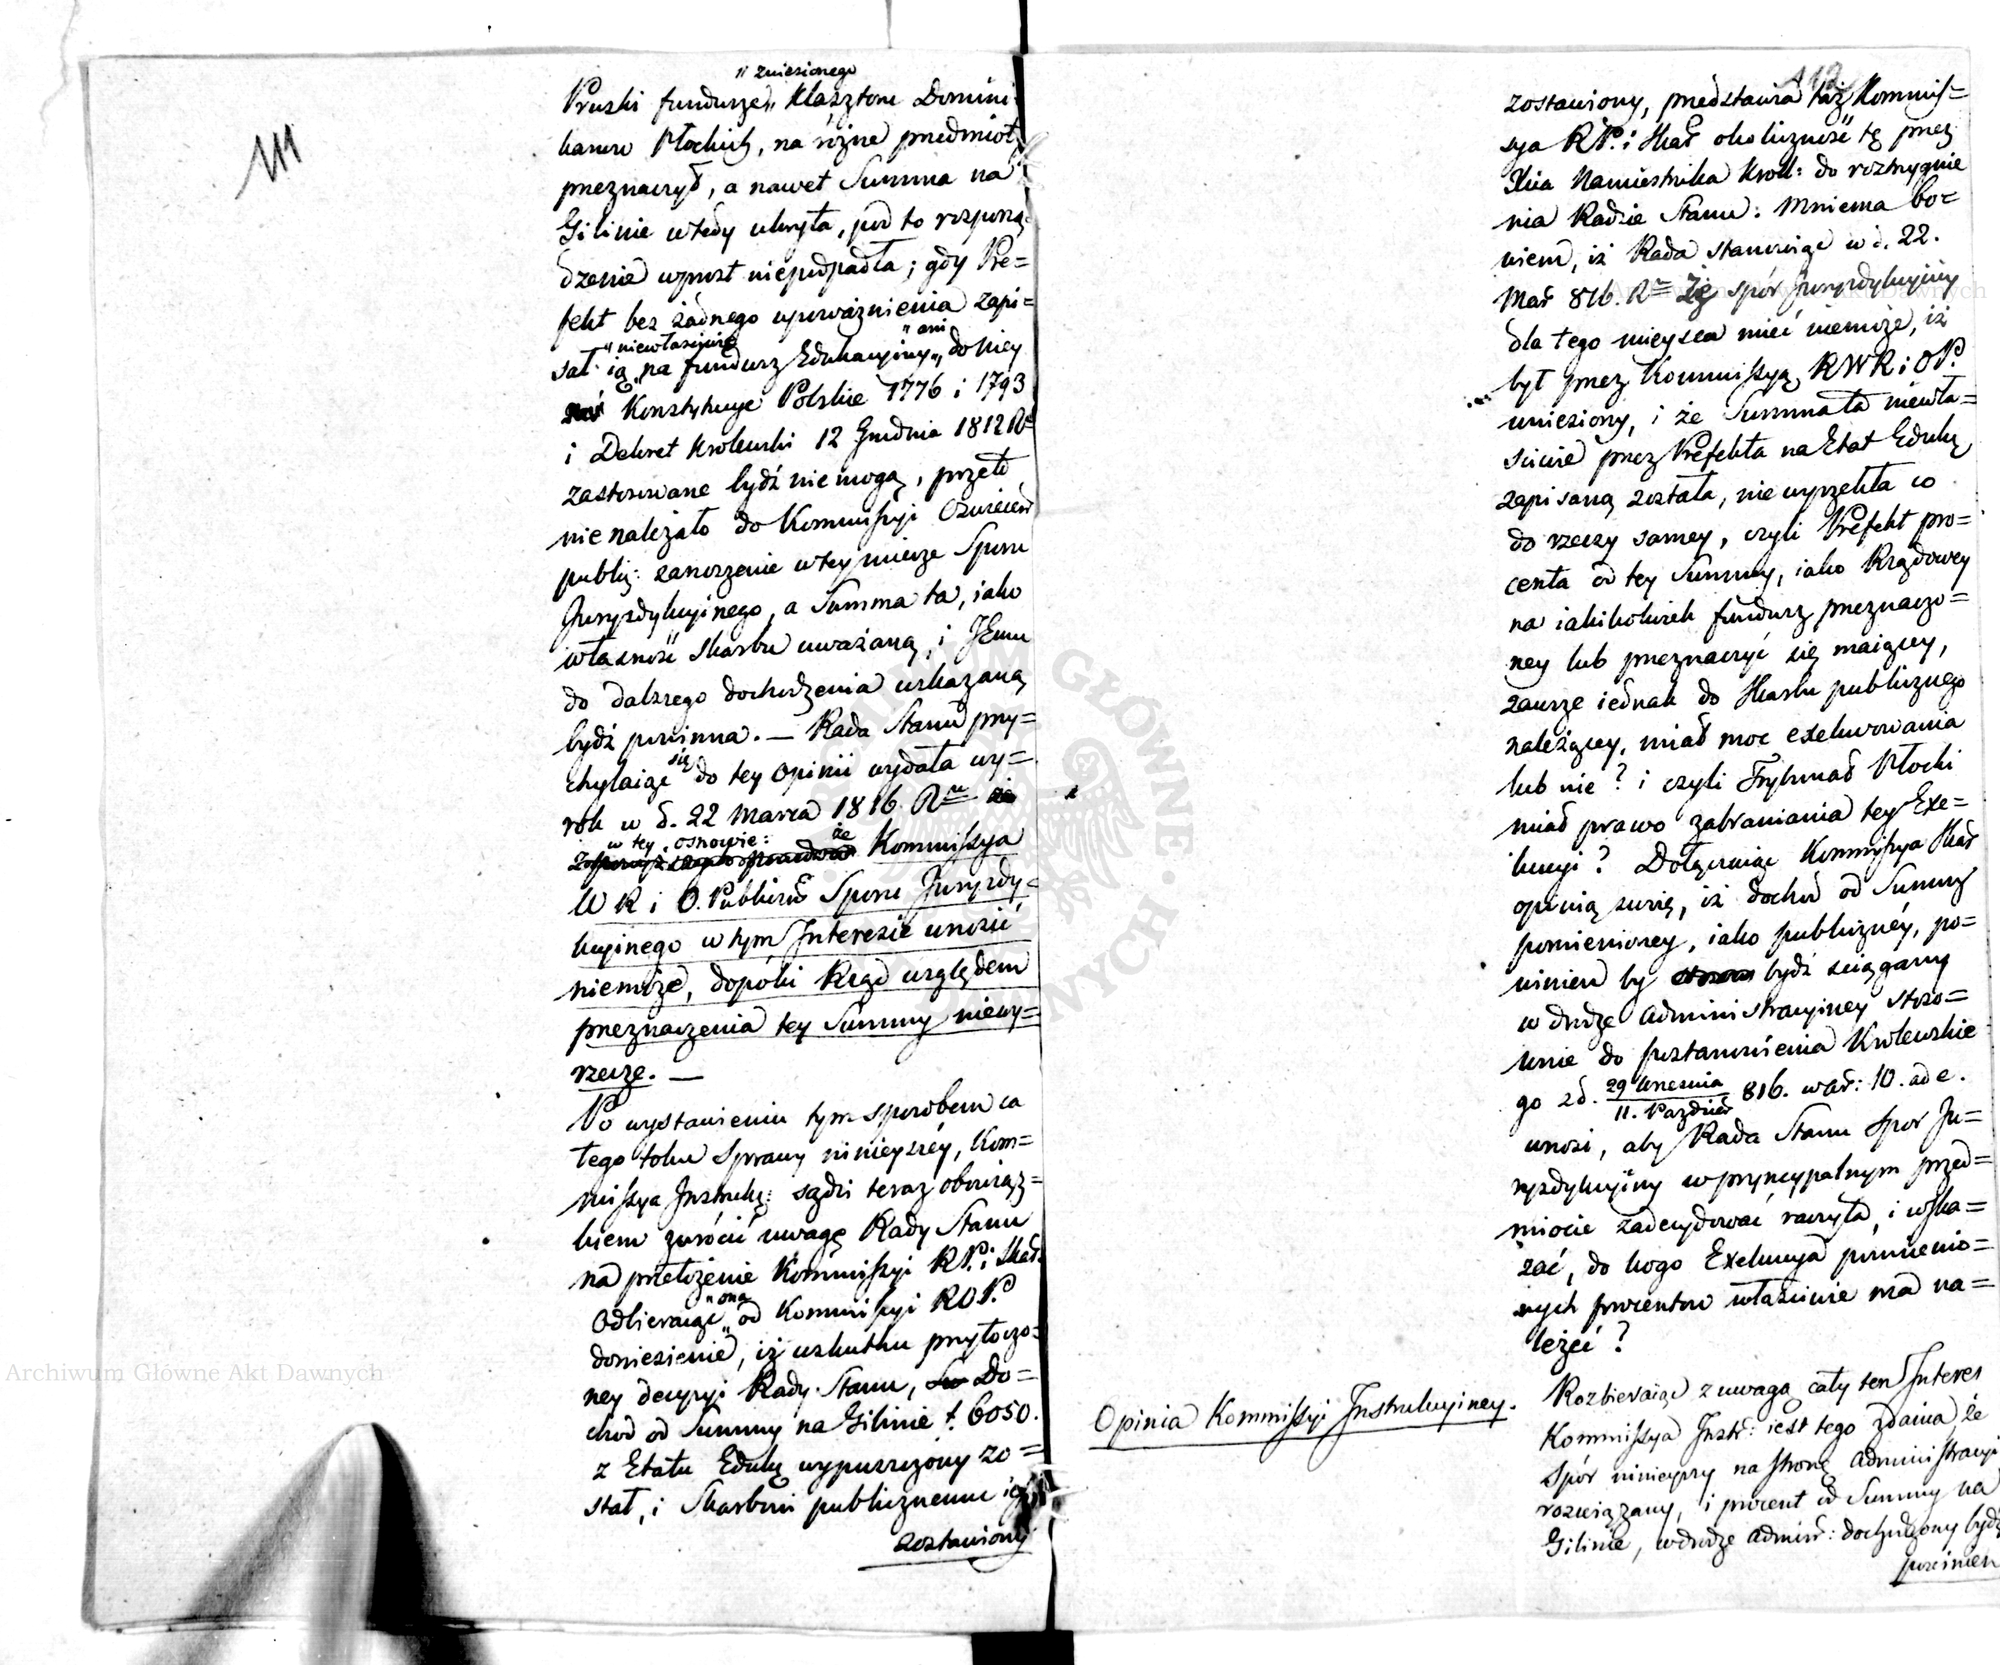 111
" zniesionego
Pruski fundusze " Klasztoru Domini-
kanow Płockich, na różne przedmioty
przeznaczył, a nawet Summa na
Gilinie wtedy ukryta, pod to rozporzą-
dzenie wprost niepodpadła; gdy Pre=
fekt bez żadnego upoważnienia zapi=
" niewłaściwie " ani
sał ią " na fundusz Edukacyiny " do niey
Konstytucye Polskie 1776 i 1793
i Dekret Krolewski 12 Grudnia 1812 Rº
zastosowane bydź niemogą, przeto
nienależało do Kommissyi Oświecen
public: zanoszenie w tey mierze Sporu
Juryzdykcyinego, a Summa ta, iako
własność Skarbu uważaną, i Jemu
do dalszego dochodzenia wskazaną
bydź powinna. — Rada Stanu przy=
chylaiąc się do tey Opinii wydała wy=
rok w d. 22 Marca 1816 Rᵘ
w tey osnowie: że
Kommissya
W R i O. Publiczn Sporu Juryzdy=
kcyinego w tym Interesie unosić
niemoże, dopóki Rząd względem
przeznaczenia tey Summy niewy=
rzecze. —
Po wystawieniu tym sposobem ca
łego toku Sprawy ninieyszéy, Kom=
missya Instrukc: sądzi teraz obowiąz=
kiem zwrócić uwagę Rady Stanu
na przełożenie Kommissyi R P. i Skar.
" oną
Odbieraiąc " od Kommissyi R O P.
doniesienie, iż w skutku przytoczo=
ney decyzyi Rady Stanu, Do=
chod od Summy na Gilinie f. 6050.
z Etatu Edukc wypuszczony zo=
stał, i Skarbowi publicznemu iest
zostawiony
112
zostawiony, przedstawia taż Kommis=
sya R P. i Skar okoliczność tę przez
Xcia Namiestnika Krol: do rozstrzygnie
nia Radzie Stanu: Mniema bo=
wiem, iż Rada stanowiąc w d. 22.
Mar 816. Rᵘ Że spór Juryzdykcyiny
dla tego mieysca mieć niemoże, iż
był przez Kommissyą R W R i O P.
uniesiony, i że Summa ta niewła=
ściwie przez Prefekta na Etat Edukc
zapisaną została, nie wyrzekła co
do rzeczy samey, czyli Prefekt pro=
centa od tey Summy, iako Rządowey
na iakikolwiek fundusz przeznaczo=
ney lub przeznaczyć się maiącey,
zawsze iednak do Skarbu publicznego
należącey, miał moc exekwowania
lub nie? i czyli Trybunał Płocki
miał prawo zabraniania tey Exe=
kucyi? Dołączaiąc Kommissya Skar
opinią swoią, iż dochod od Summy
pomienioney, iako publicznéy, po=
winien by bydź ściągany
w drodze administracyiney stoso=
wnie do postanowienia Krolewskie
go z d. 29 Wrzesnia / 11. Pazdzier 816. war: 10. ad e.
wnosi, aby Rada Stanu spor Ju=
ryzdykcyiny w pryncypalnym przed=
miocie zadecydować raczyła, i wska=
zać, do kogo Exekucya pomienio=
nych procentow właściwie ma na=
leżeć?
Opinia Kommissyi Instrukcyiney.
Rozbieraiąc z uwagą cały ten Interes
Kommissya Instr: iest tego zdania, że
Spór ninieyszy na stronę administracyi
rozwiązany, i procent od Summy na
Gilinie, w drodze admin: dochodzony bydź
powinien
Archiwum Główne Akt Dawnych